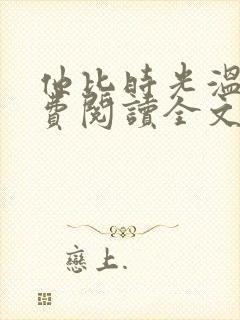 他比時光溫
費閱讀全文
戀上.